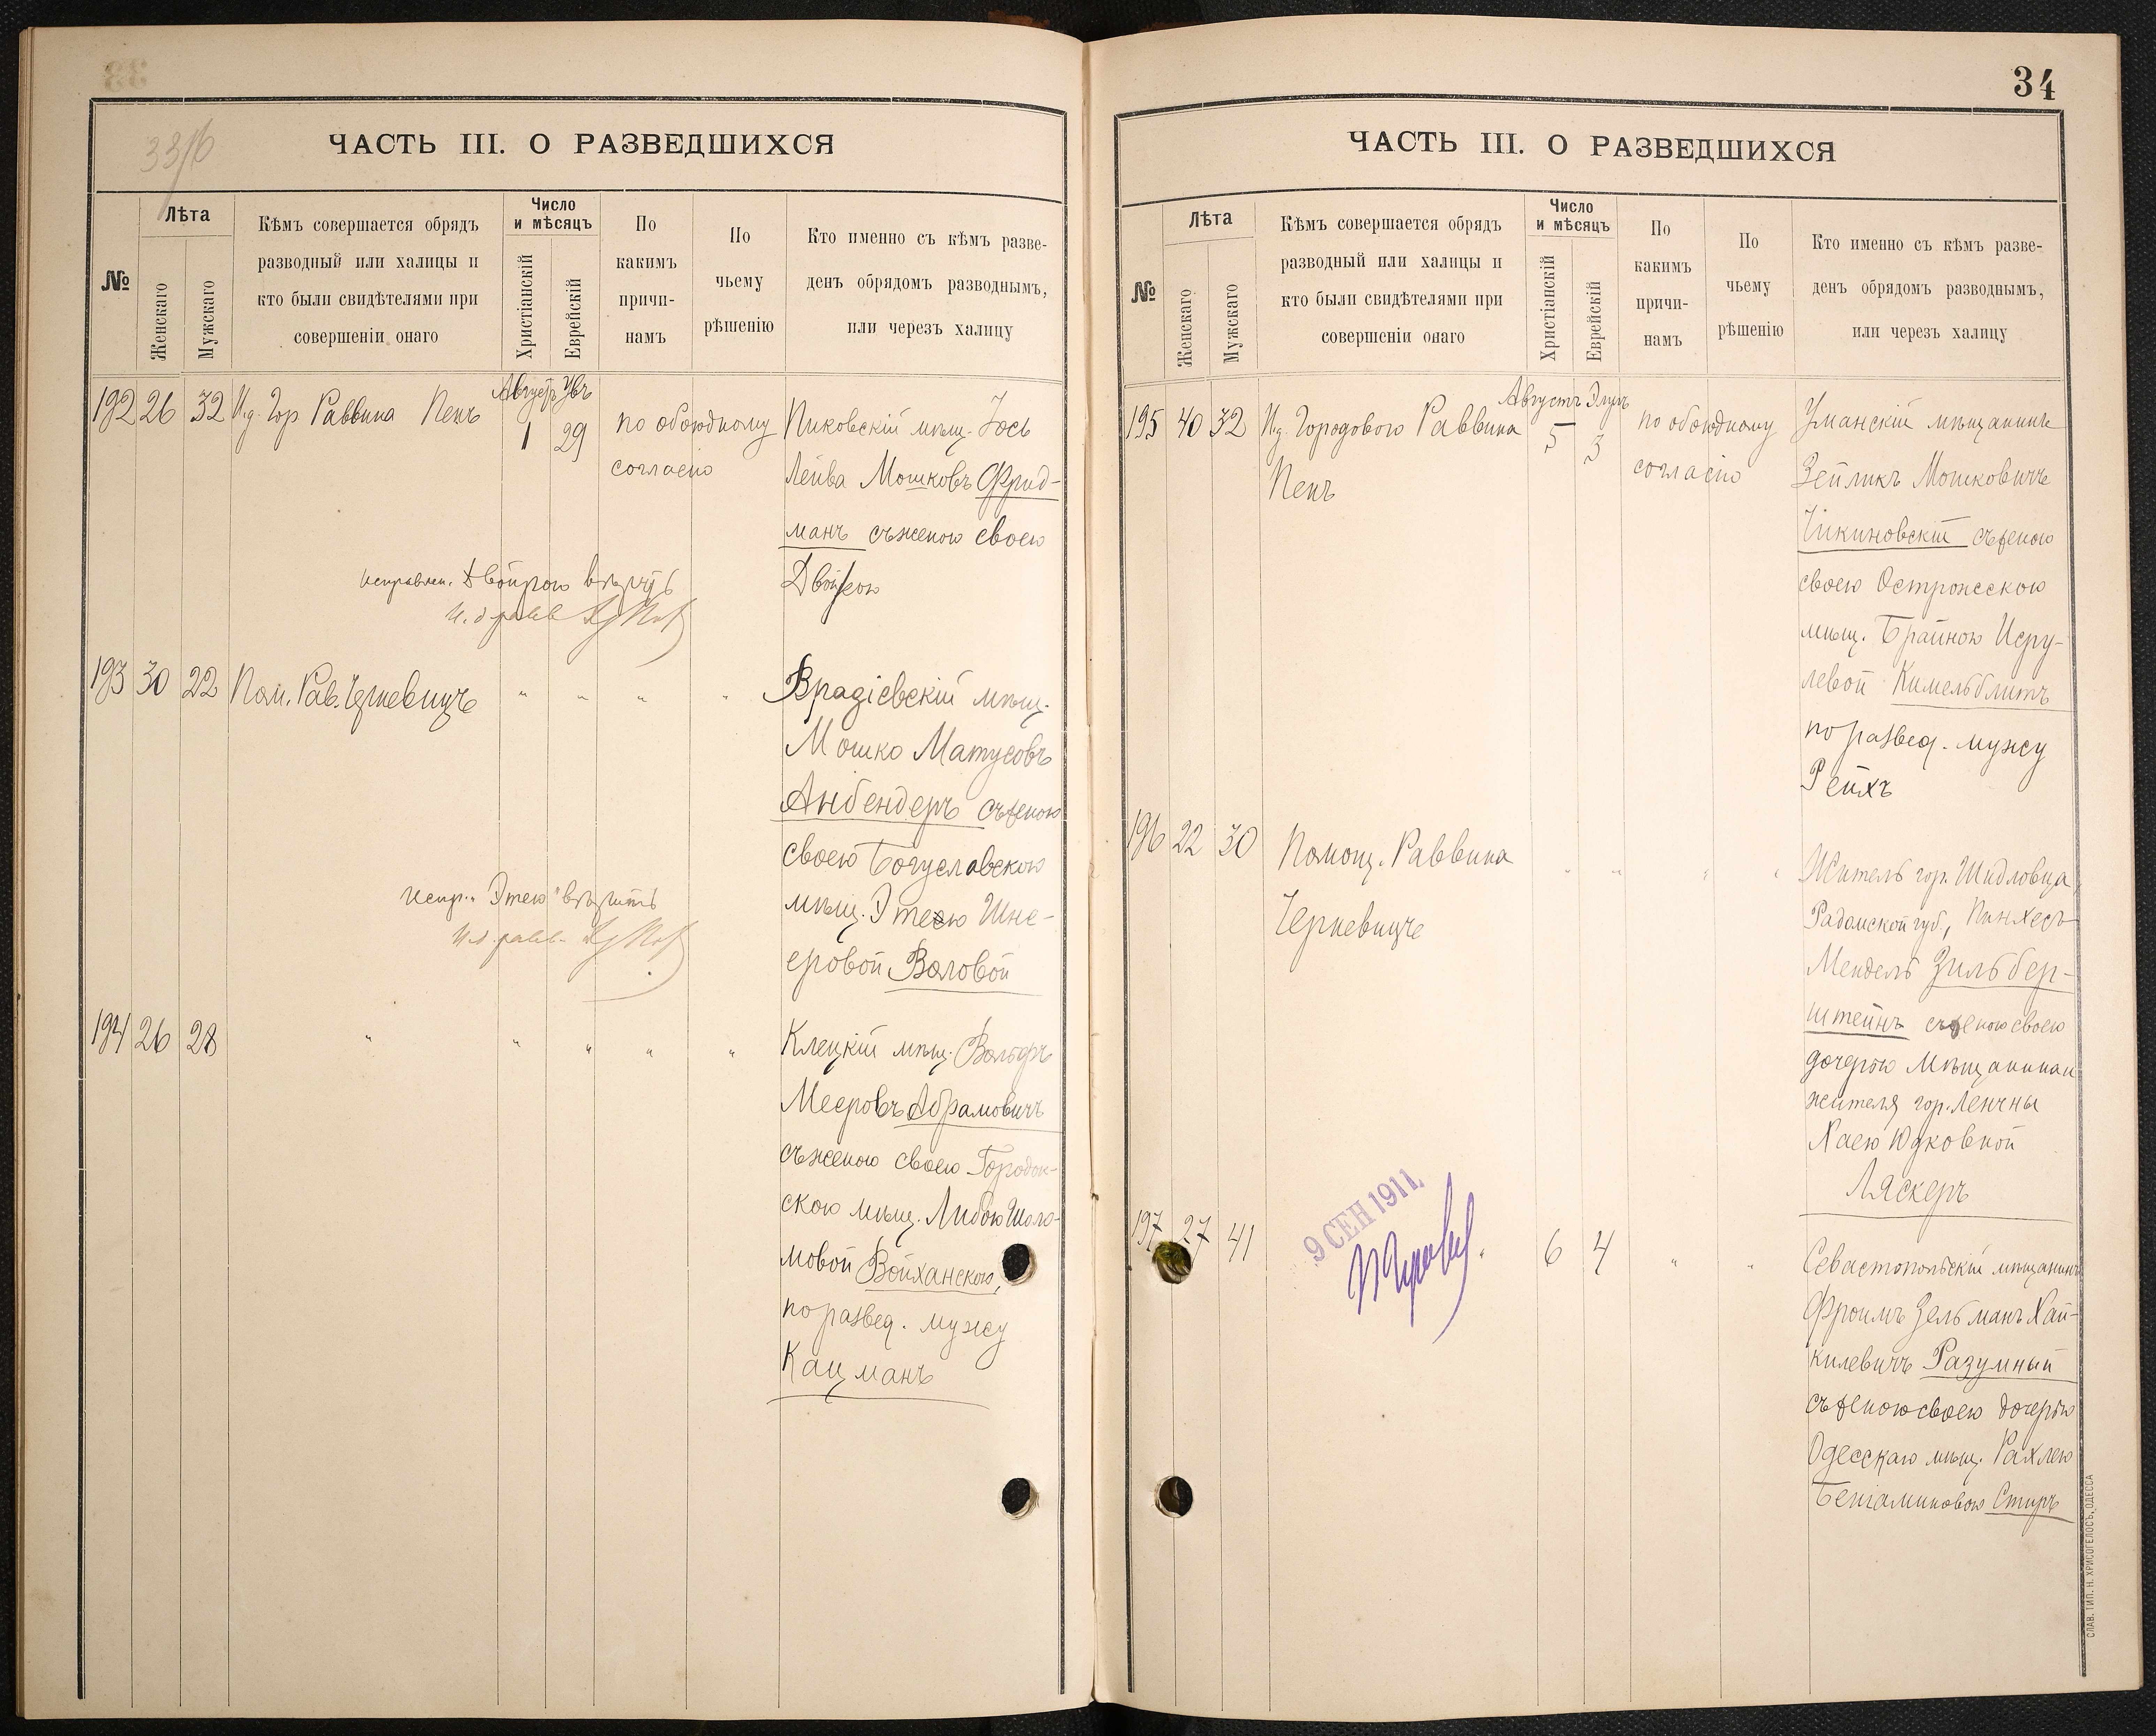 33/б
ЧАСТЬ III. О РАЗВЕДШИХСЯ
№
Лѣта
Женскаго
Мужскаго
Кѣмъ совершается обрядъ
разводный или халицы и
кто были свидѣтелями при
совершеніи онаго
Число
и мѣсяцъ
Христіанскій
Еврейскій
По
какимъ
причи-
намъ
По
чьему
рѣшенію
Кто именно съ кѣмъ разве-
денъ обрядомъ разводнымъ,
или черезъ халицу
192 26 32 И.д. Гор. Раввина Пенъ
Августъ Увъ
1 29
по обоюдному
согласію
Пиковскій мѣщ. Іось
Лейва Мошковъ Фрид-
манъ съ женою своею
Двойрою
исправлен. Двойрою вѣрить
И.д. равв.
193 30 22 Пом. Рав. Черкевицъ " " " "
Врадіевскій мѣщ.
Мошко Матусовъ
Анбендеръ съ женою
своею Богуславскою
мѣщ. Этею Шне-
еровой Воловой
Испр. "Этею" вѣрить
И.д. равв.
194 26 28 " " " " "
Клецкій мѣщ. Вольфъ
Мееровъ Абрамовичъ
съ женою своею Городок-
скою мѣщ. Либою Шоло-
мовой Войханскою,
по развед. мужу
Кацманъ
34
ЧАСТЬ III. О РАЗВЕДШИХСЯ
№
Лѣта
Женскаго
Мужскаго
Кѣмъ совершается обрядъ
разводный или халицы и
кто были свидѣтелями при
совершеніи онаго
Число
и мѣсяцъ
Христіанскій
Еврейскій
По
какимъ
причи-
намъ
По
чьему
рѣшенію
Кто именно съ кѣмъ разве-
денъ обрядомъ разводнымъ,
или черезъ халицу
195 40 32 И.д. Городового Раввина
Пенъ
Августъ Элулъ
5 3
по обоюдному
согласію
Уманскій мѣщанинъ
Зейликъ Мошковичъ
Чикиновскій съ женою
своею Острожскою
мѣщ. Брайною Исру-
левой Кимельблитъ
по развед. мужу
Рейхъ
196 22 30 Помощ. Раввина
Черкевицъ
" " " "
Житель гор. Шидловца,
Радомской губ., Пинхесъ
Мендель Зильбер-
штейнъ съ женою своею
дочерью мѣщанина
жителя гор. Ленчны
Хаею Юдковной
Ляскеръ
197 27 41 " 6 4 " "
9 СЕН 1911.
Севастопольскій мѣщанинъ
Фроимъ Зельманъ Хай-
килевичъ Разумный
съ женою своею дочерью
Одесскаго мѣщ. Рахлею
Беніаминовою Стиръ
СЛАВ. ТИП. Н. ХРИСОГЕЛОСЪ, ОДЕССА